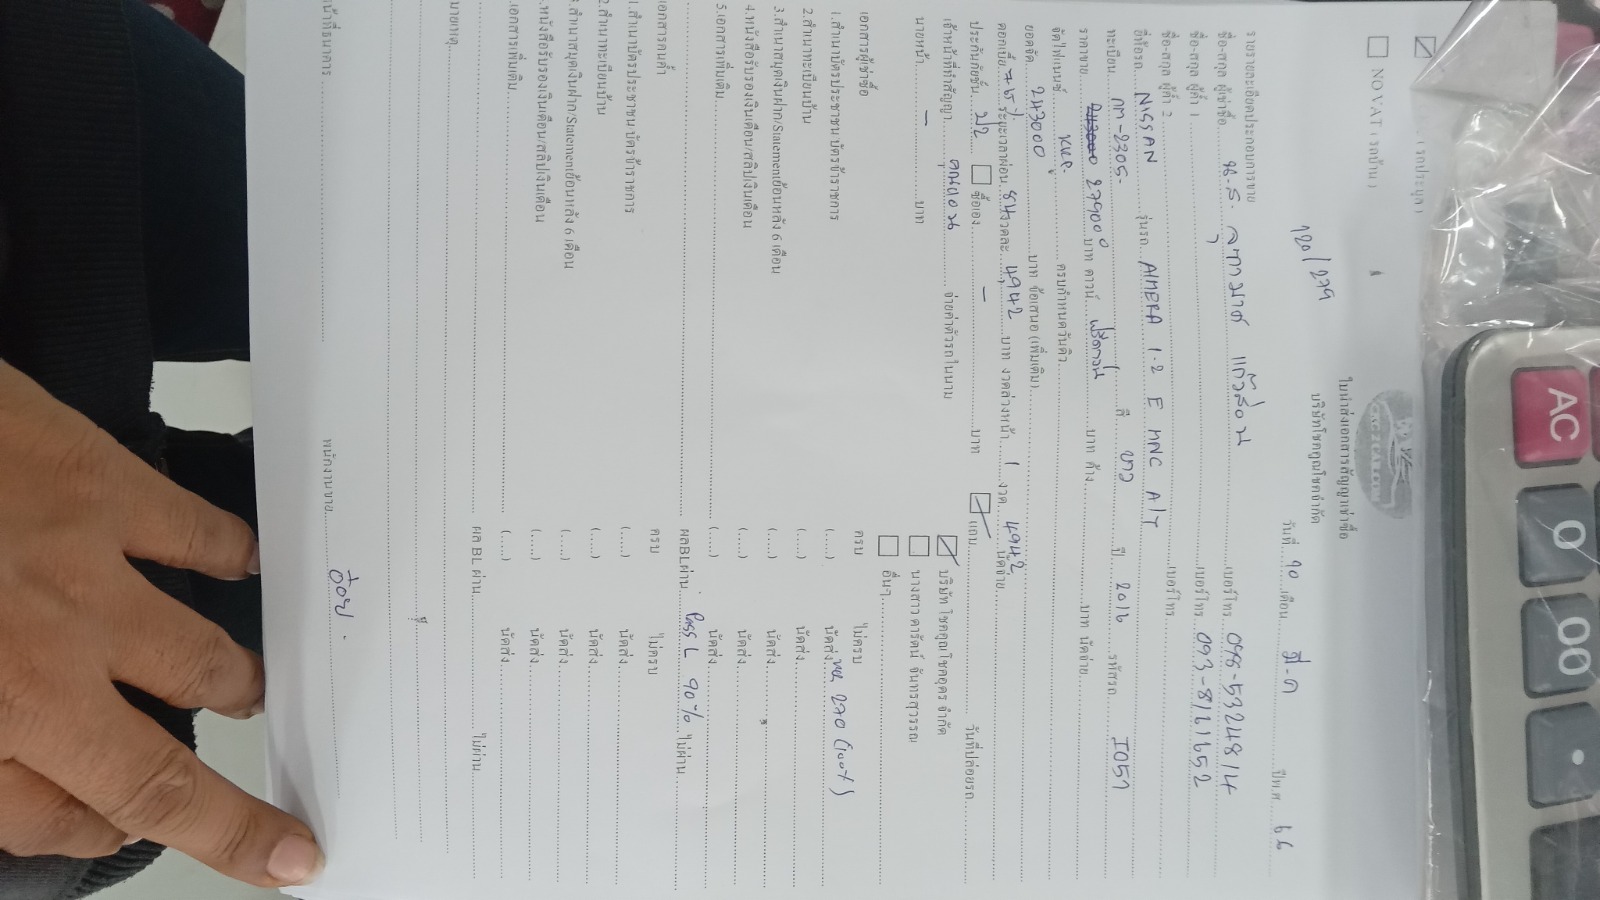 ( รถประมูล )
NO VAT ( รถบ้าน )
CAC2CAR.COM
ใบนำส่งเอกสารสัญญาเช่าซื้อ
บริษัทโชคคูณโชคจำกัด
วันที่ 10 เดือน มี.ค ปีพ.ศ. 66
รายรายละเอียดประกอบการขาย
ชื่อ-สกุล ผู้เช่าซื้อ น.ส. แก้วสอน เบอร์โทร 098-5324814
ชื่อ-สกุล ผู้ค้ำ 1 เบอร์โทร 093-8121652
ชื่อ-สกุล ผู้ค้ำ 2 เบอร์โทร
ยี่ห้อรถ NISSAN รุ่นรถ ALMERA 1.2 E MNC A/T
ทะเบียน กท-2305 สี ขาว ปี 2016 รหัสรถ I057
ราคาขาย 279000 บาท ดาวน์ ฟรีดาวน์ บาท ค้าง บาท นัดจ่าย
จัดไฟแนนซ์ KKP ครบกำหนดวันคิว
ยอดจัด 243000 บาท ข้อเสนอ (เพิ่มเติม)
ดอกเบี้ย ระยะเวลาผ่อน 84 งวดละ 4,942 บาท งวดล่วงหน้า 1 งวด 4942 นัดจ่าย
ประกันภัยชั้น ป2 ซื้อเอง - บาท แถม วันที่ปล่อยรถ
เจ้าหน้าที่ทำสัญญา จ่ายค่าตัวรถในนาม บริษัท โชคคูณโชคอุดร จำกัด
นายหน้า - บาท นางสาว ดารัตน์ จันทรสุวรรณ
อื่นๆ
เอกสารผู้เช่าซื้อ ครบ ไม่ครบ
1.สำเนาบัตรประชาชน/ บัตรข้าราชการ (.....) นัดส่ง 270 (100%)
2.สำเนาทะเบียนบ้าน (.....) นัดส่ง
3.สำเนาสมุดเงินฝาก/Statementย้อนหลัง 6 เดือน (.....) นัดส่ง
4.หนังสือรับรองเงินเดือน/สลิปเงินเดือน (.....) นัดส่ง
5.เอกสารเพิ่มเติม (.....) นัดส่ง
ผลBLผ่าน Pass L 90% ไม่ผ่าน
เอกสารคนค้ำ ครบ ไม่ครบ
1.สำเนาบัตรประชาชน บัตรข้าราชการ (.....) นัดส่ง
2.สำเนาทะเบียนบ้าน (.....) นัดส่ง
3.สำเนาสมุดเงินฝาก/Statementย้อนหลัง 6 เดือน (.....) นัดส่ง
.หนังสือรับรองเงินเดือน/สลิปเงินเดือน (.....) นัดส่ง
.เอกสารเพิ่มเติม (.....) นัดส่ง
ผล BL ผ่าน ไม่ผ่าน
มายเหตุ
น้าที่ธนาคาร พนักงานขาย อ้อย
AC
0
00
.